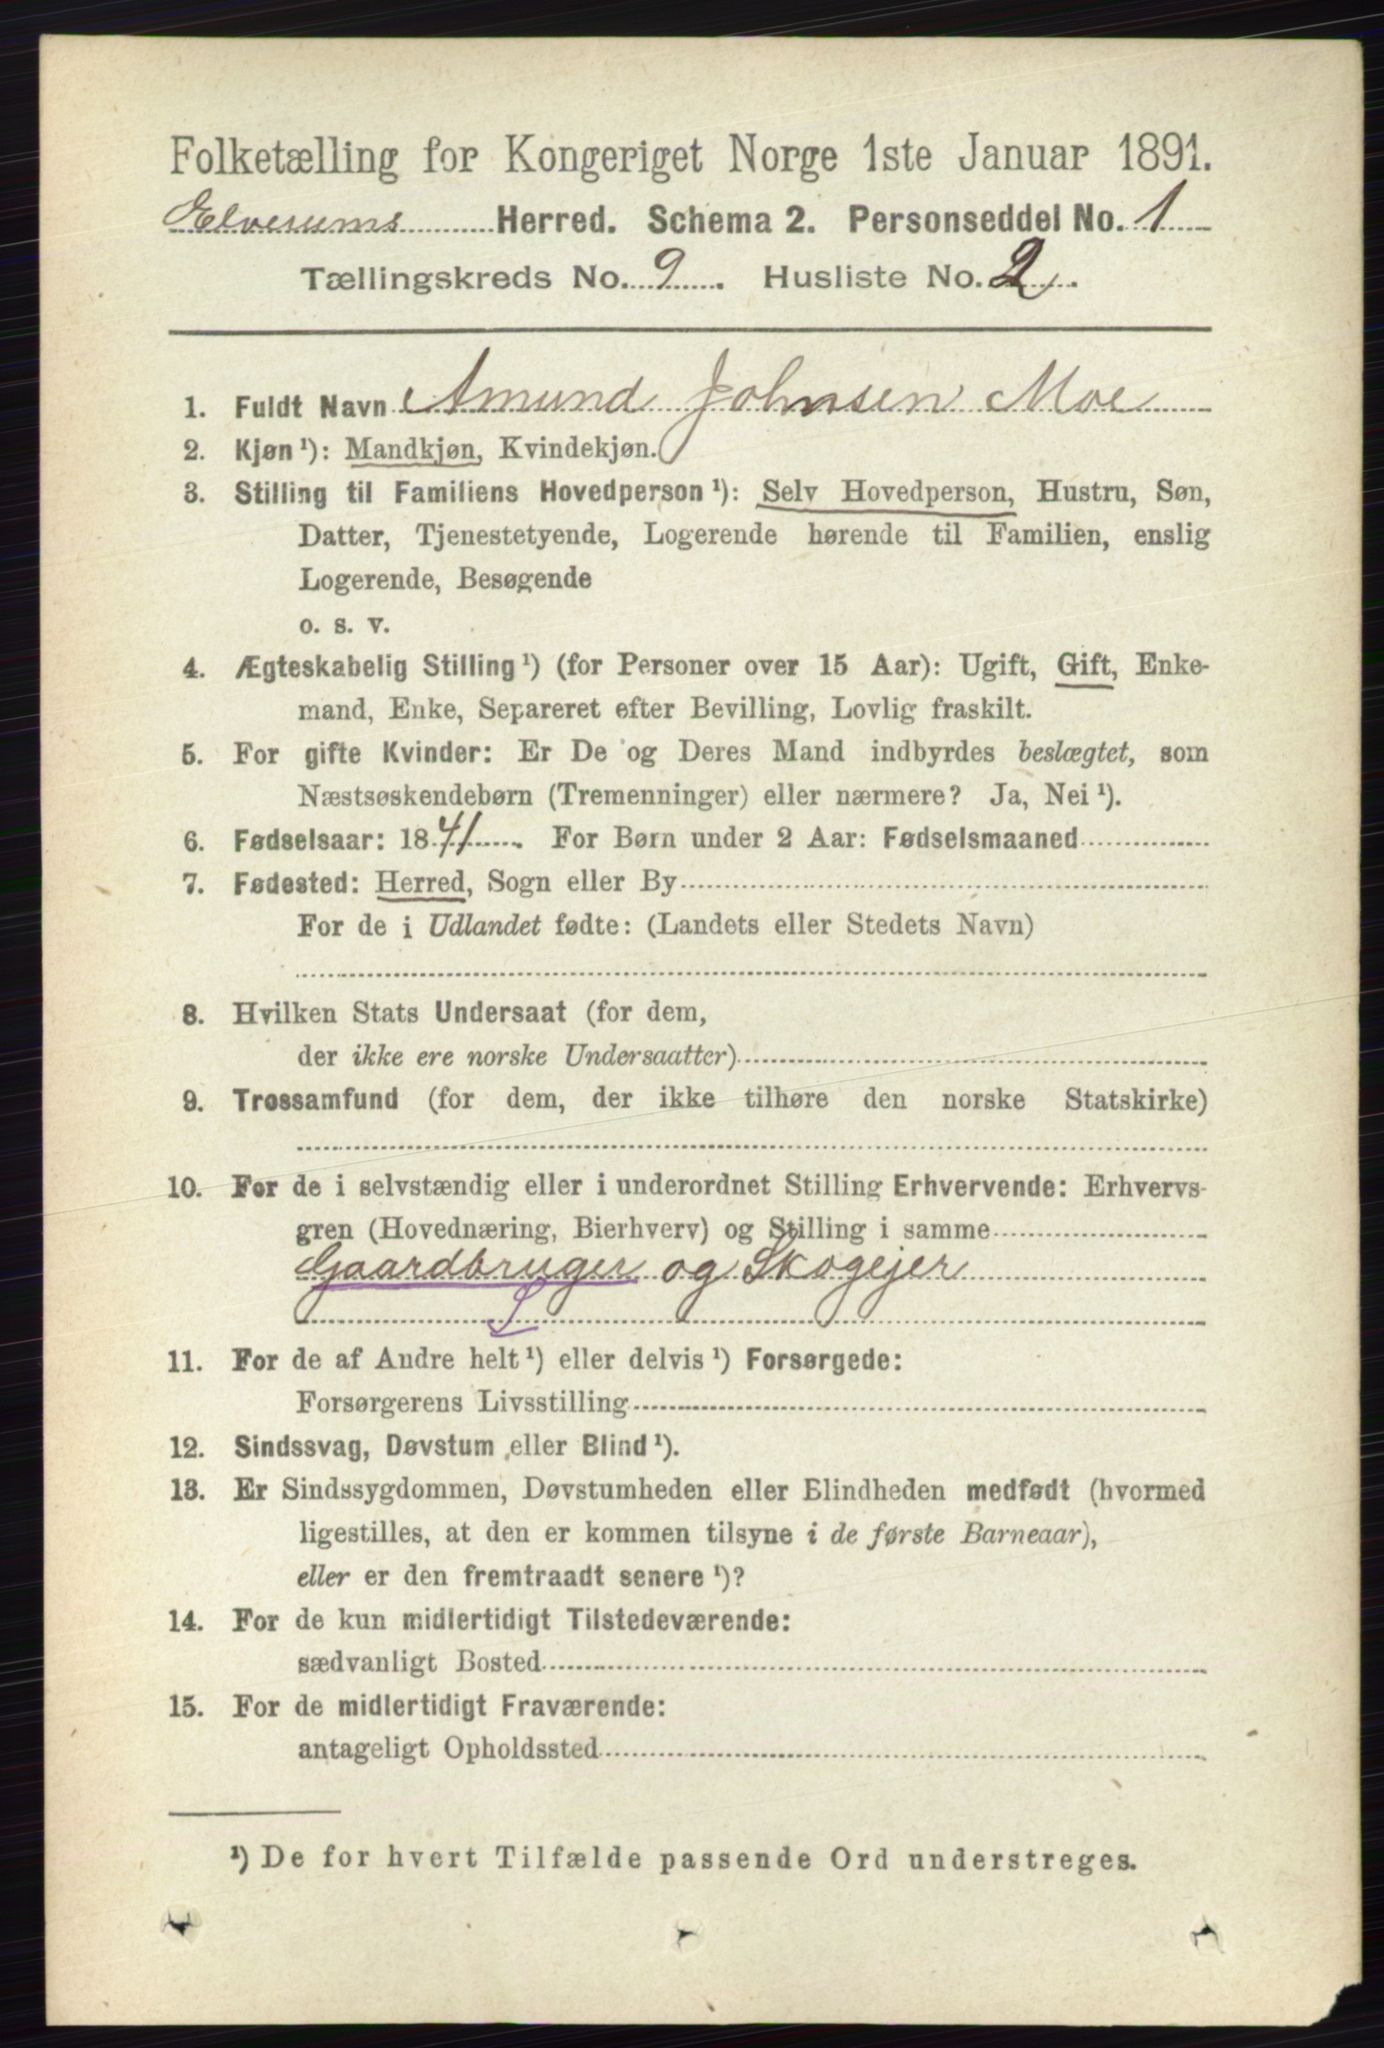 Folketælling for Kongeriget Norge 1ste Januar 1891.
Elverums Herred. Schema 2. Personseddel No. 1
Tællingskreds No. 9. Husliste No. 2.
1. Fuldt Navn Amund Johnsen Moe
2. Kjøn ¹): Mandkjøn, Kvindekjøn.
3. Stilling til Familiens Hovedperson ¹): Selv Hovedperson, Hustru, Søn,
Datter, Tjenestetyende, Logerende hørende til Familien, enslig
Logerende, Besøgende
o. s. v.
4. Ægteskabelig Stilling ¹) (for Personer over 15 Aar): Ugift, Gift, Enke-
mand, Enke, Separeret efter Bevilling, Lovlig fraskilt.
5. For gifte Kvinder: Er De og Deres Mand indbyrdes beslægtet, som
Næstsøskendebørn (Tremenninger) eller nærmere? Ja, Nei ¹).
6. Fødselsaar: 1841. For Børn under 2 Aar: Fødselsmaaned
7. Fødested: Herred, Sogn eller By
For de i Udlandet fødte: (Landets eller Stedets Navn)
8. Hvilken Stats Undersaat (for dem,
der ikke ere norske Undersaatter)
9. Trossamfund (for dem, der ikke tilhøre den norske Statskirke)
10. For de i selvstændig eller i underordnet Stilling Erhvervende: Erhvervs-
gren (Hovednæring, Bierhverv) og Stilling i samme
Gaardbruger og Skogejer
S
11. For de af Andre helt ¹) eller delvis ¹) Forsørgede:
Forsørgerens Livsstilling
12. Sindssvag, Døvstum eller Blind ¹).
13. Er Sindssygdommen, Døvstumheden eller Blindheden medfødt (hvormed
ligestilles, at den er kommen tilsyne i de første Barneaar),
eller er den fremtraadt senere ¹)?
14. For de kun midlertidigt Tilstedeværende:
sædvanligt Bosted
15. For de midlertidigt Fraværende:
antageligt Opholdssted
¹) De for hvert Tilfælde passende Ord understreges.